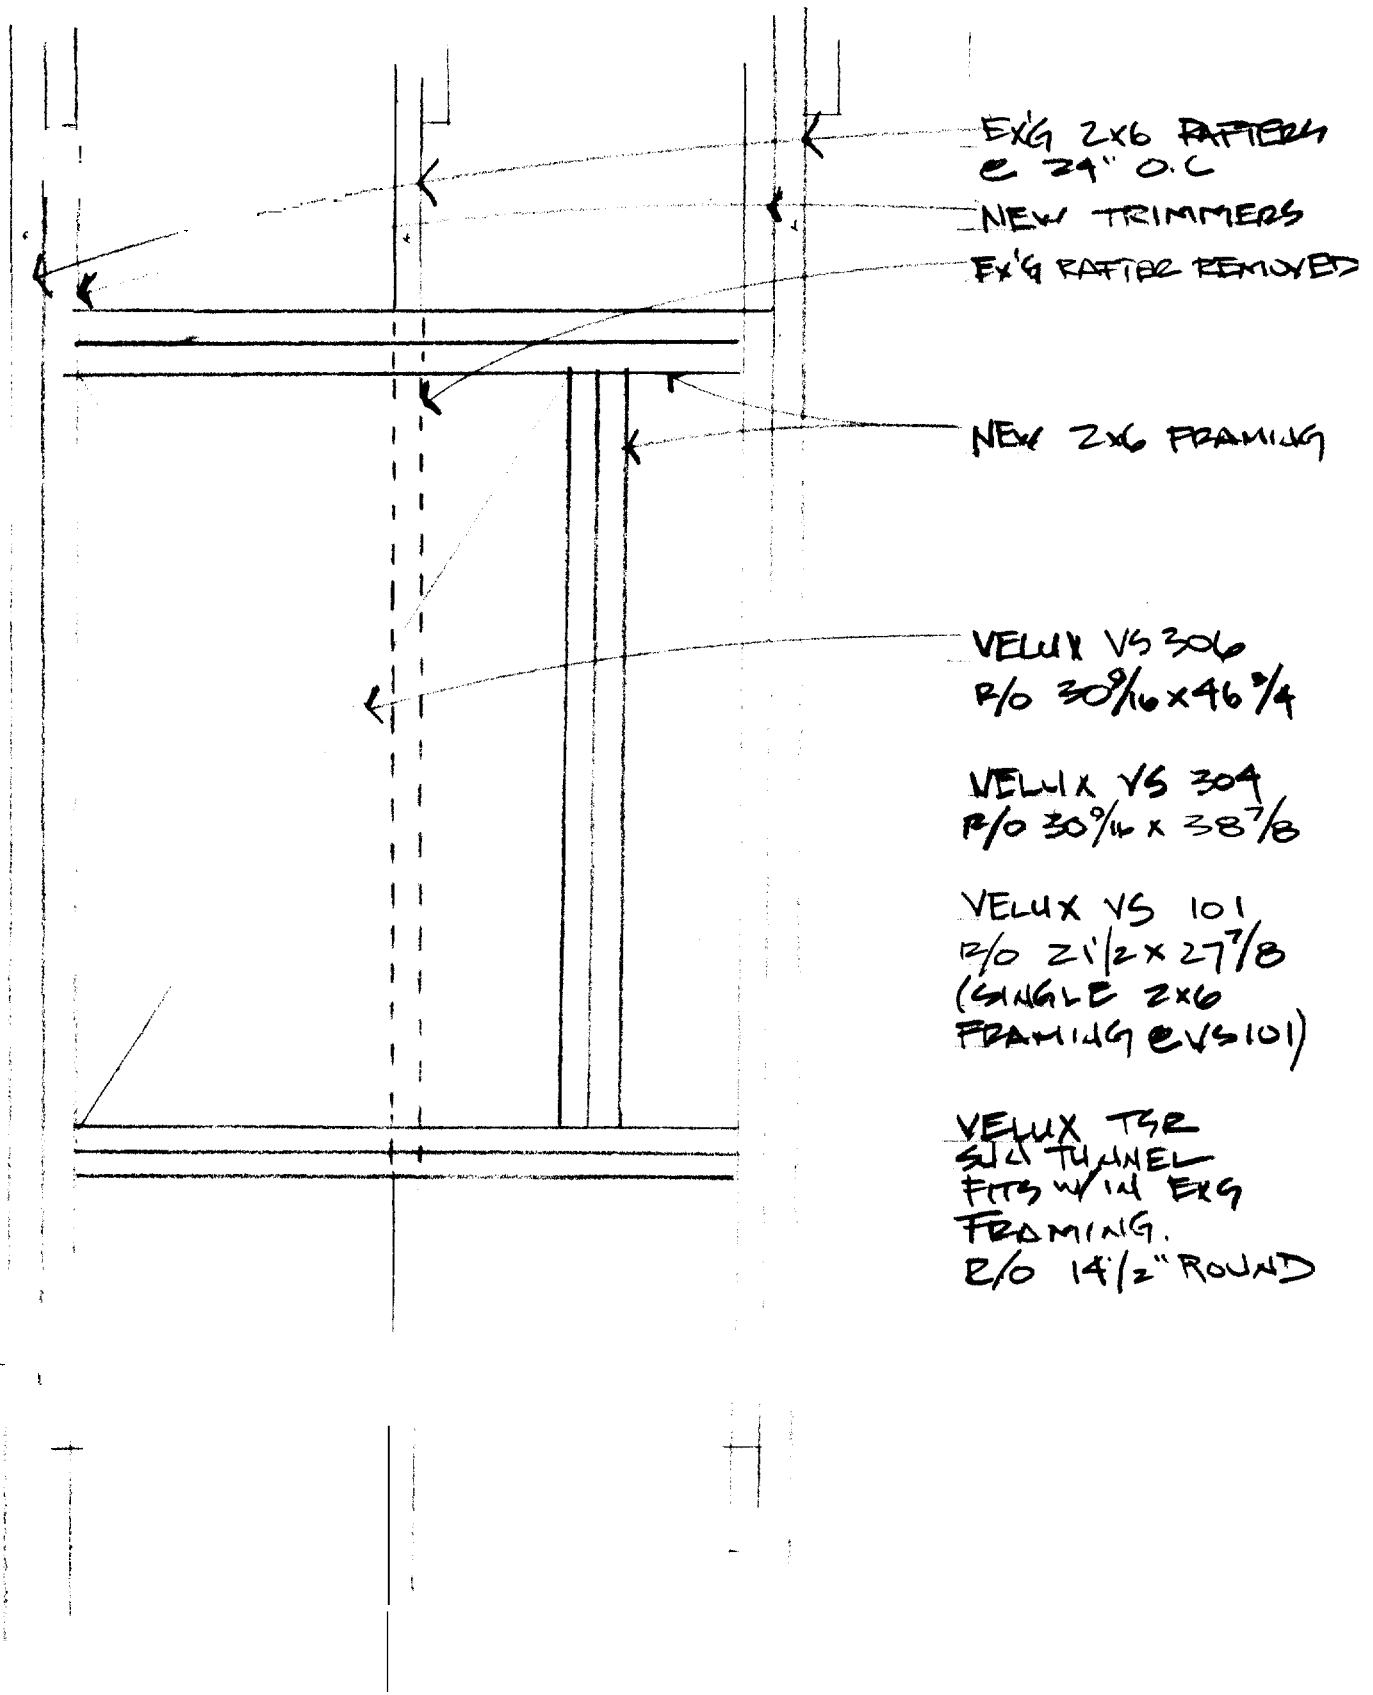 EX'G 2x6 RAFTERS
@ 24" O.C
NEW TRIMMERS
EX'G RAFTER REMOVED
NEW 2x6 FRAMING
VELUX VS 306
R/O 30 9/16 x 46 3/4
VELUX VS 304
R/O 30 9/16 x 38 7/8
VELUX VS 101
R/O 21 1/2 x 27 7/8
(SINGLE 2x6
FRAMING @ VS 101)
VELUX TSR
SUN TUNNEL
FITS W/IN EXG
FRAMING.
R/O 14 1/2" ROUND